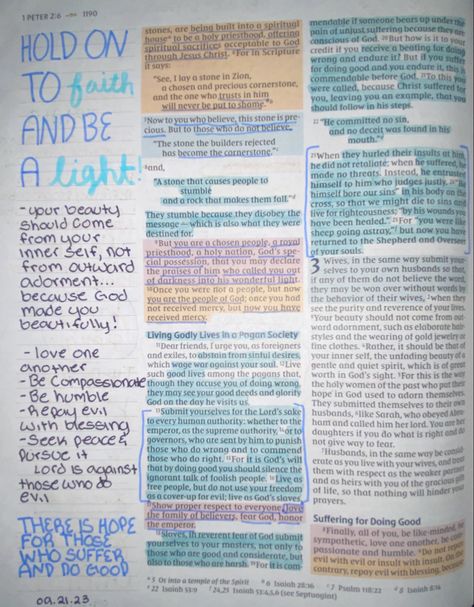 1 PETER 2:6 1190
HOLD ON
TO faith
AND BE
A light!
- your beauty
should come
from your
inner self, not
from outward
adorment...
because God
made you
beautifully!
- love one
another
- Be Compassionate
- Be humble
- Repay evil
with blessing
- Seek peace &
Pursue it
Lord is against
those who do
evil
THERE IS HOPE
FOR THOSE
WHO SUFFER
AND DO GOOD
09.21.23
stones, are being built into a spiritual
house to be a holy priesthood, offering
spiritual sacrifices acceptable to God
through Jesus Christ. 6For in Scripture
it says:
"See, I lay a stone in Zion,
a chosen and precious cornerstone,
and the one who trusts in him
will never be put to shame."
7Now to you who believe, this stone is pre-
cious. But to those who do not believe,
"The stone the builders rejected
has become the cornerstone,"
8and,
"A stone that causes people to
stumble
and a rock that makes them fall."
They stumble because they disobey the
message — which is also what they were
destined for.
9But you are a chosen people, a royal
priesthood, a holy nation, God's spe-
cial possession, that you may declare
the praises of him who called you out
of darkness into his wonderful light.
10Once you were not a people, but now
you are the people of God; once you had
not received mercy, but now you have
received mercy.
Living Godly Lives in a Pagan Society
11Dear friends, I urge you, as foreigners
and exiles, to abstain from sinful desires,
which wage war against your soul. 12Live
such good lives among the pagans that,
though they accuse you of doing wrong,
they may see your good deeds and glorify
God on the day he visits us.
13Submit yourselves for the Lord's sake
to every human authority: whether to the
emperor, as the supreme authority, 14or to
governors, who are sent by him to punish
those who do wrong and to commend
those who do right. 15For it is God's will
that by doing good you should silence the
ignorant talk of foolish people. 16Live as
free people, but do not use your freedom
as a cover-up for evil; live as God's slaves.
17Show proper respect to everyone, love
the family of believers, fear God, honor
the emperor.
18Slaves, in reverent fear of God submit
yourselves to your masters, not only to
those who are good and considerate, but
also to those who are harsh. 19For it is com-
mendable if someone bears up under the
pain of unjust suffering because they are
conscious of God. 20But how is it to your
credit if you receive a beating for doing
wrong and endure it? But if you suffer
for doing good and you endure it, this is
commendable before God. 21To this you
were called, because Christ suffered for
you, leaving you an example, that you
should follow in his steps.
22"He committed no sin,
and no deceit was found in his
mouth."
23When they hurled their insults at him,
he did not retaliate; when he suffered, he
made no threats. Instead, he entrusted
himself to him who judges justly. 24"He
himself bore our sins" in his body on the
cross, so that we might die to sins and
live for righteousness; "by his wounds you
have been healed." 25For "you were like
sheep going astray," but now you have
returned to the Shepherd and Overseer
of your souls.
3 Wives, in the same way submit your-
selves to your own husbands so that,
if any of them do not believe the word,
they may be won over without words by
the behavior of their wives, 2when they
see the purity and reverence of your lives.
3Your beauty should not come from out-
ward adornment, such as elaborate hair-
styles and the wearing of gold jewelry or
fine clothes. 4Rather, it should be that of
your inner self, the unfading beauty of a
gentle and quiet spirit, which is of great
worth in God's sight. 5For this is the way
the holy women of the past who put their
hope in God used to adorn themselves.
They submitted themselves to their own
husbands, 6like Sarah, who obeyed Abra-
ham and called him her lord. You are her
daughters if you do what is right and do
not give way to fear.
7Husbands, in the same way be consid-
erate as you live with your wives, and treat
them with respect as the weaker partner
and as heirs with you of the gracious gift
of life, so that nothing will hinder your
prayers.
Suffering for Doing Good
8Finally, all of you, be like-minded, be
sympathetic, love one another, be com-
passionate and humble. 9Do not repay
evil with evil or insult with insult. On the
contrary, repay evil with blessing, because
a 5 Or into a temple of the Spirit b 6 Isaiah 28:16 c 7 Psalm 118:22 d 8 Isaiah 8:14
e 22 Isaiah 53:9 f 24,25 Isaiah 53:4,5,6 (see Septuagint)